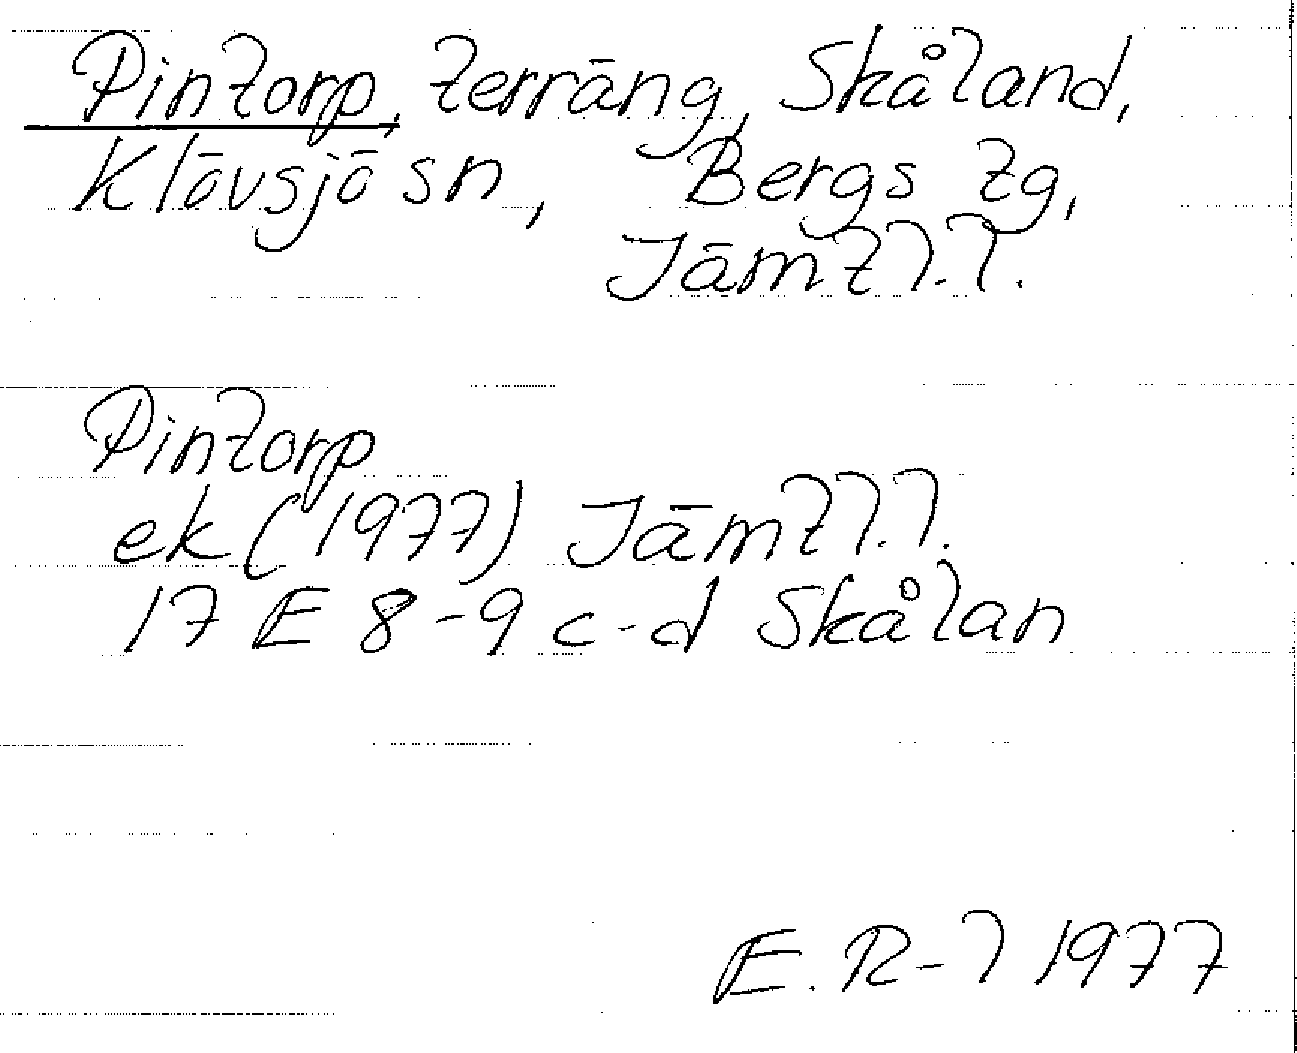 Pintorp, terräng, Skåland,
Klövsjö sn, Bergs tg,
Jämtl.l.
Pintorp
ek (1977) Jämtl.l.
17 E 8-9 c-d Skålan
E. R-l 1977